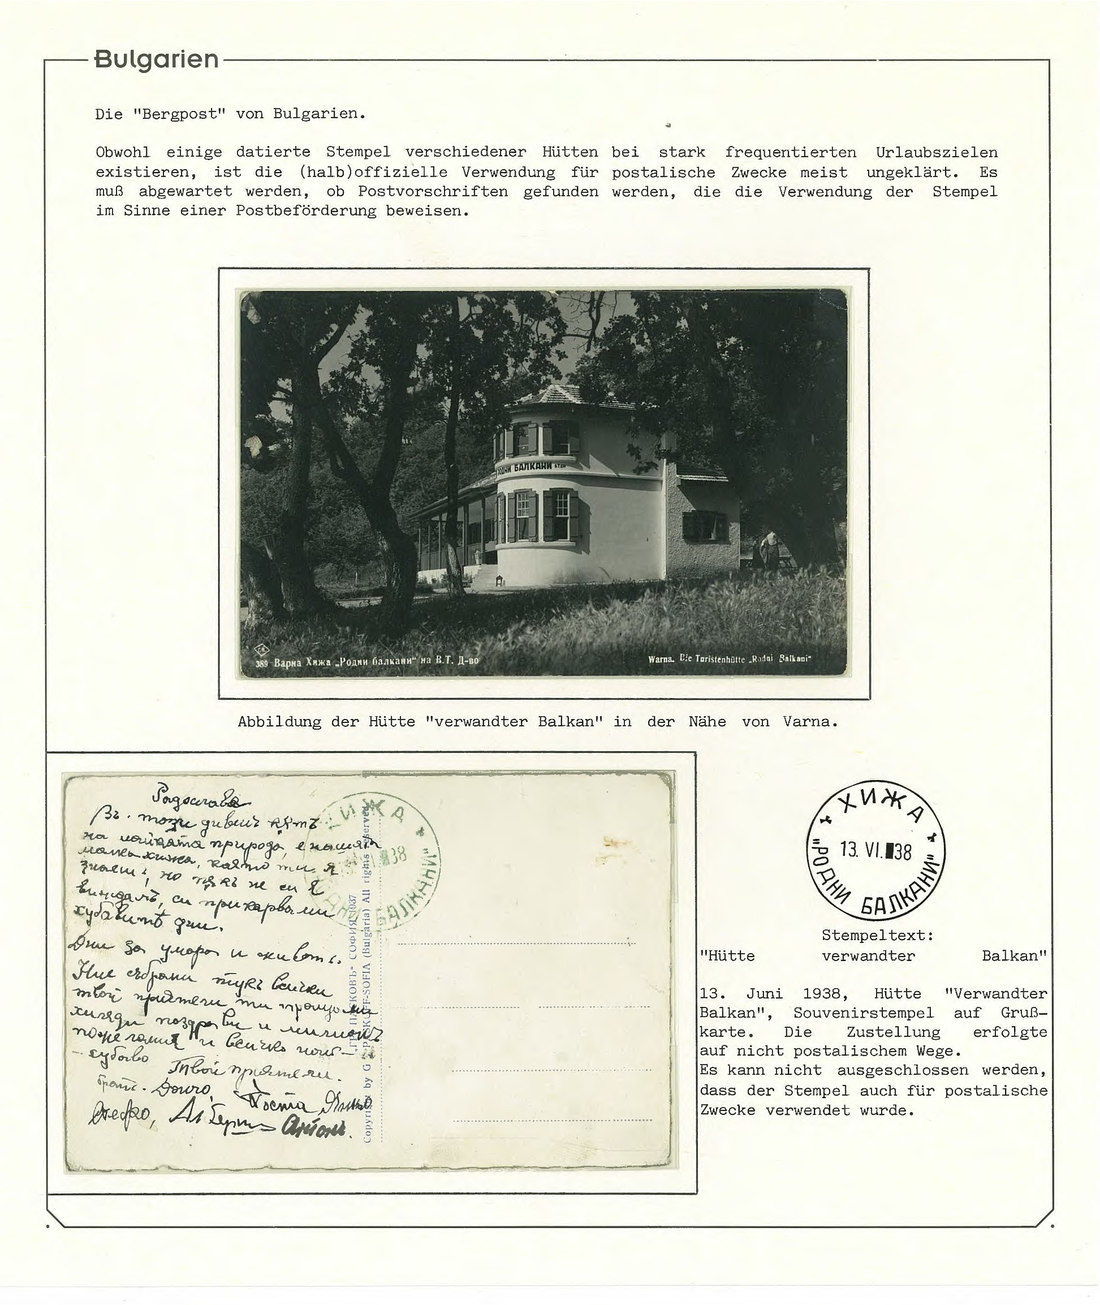 Bulgarien
Die "Bergpost" von Bulgarien.
Obwohl einige datierte Stempel verschiedener Hütten bei stark frequentierten Urlaubszielen
existieren, ist die (halb)offizielle Verwendung für postalische Zwecke meist ungeklärt. Es
muß abgewartet werden, ob Postvorschriften gefunden werden, die die Verwendung der Stempel
im Sinne einer Postbeförderung beweisen.
РОДНИ БАЛКАНИ
389 Варна Хижа „Родни балкани" на В.Т. Д-во
Warna. Die Turistenhütte „Rodni Balkani"
Abbildung der Hütte "verwandter Balkan" in der Nähe von Varna.
Въ този дивенъ кътъ
на майката природа, е нашата
малка хижа, която ти я
знаешъ, но пъкъ не си я
хубавитѣ дни.
Дни за умора и животъ.
Ние събрани тукъ всички
твои приятели ти пращаме
хиляди поздрави и
пожелания и всичко най-
-хубаво
Твои приятели.
Дончо, Коста
Антонъ.
ХИЖА
38
РОДНИ БАЛКАНИ"
СОФИЯ
Copyright by G PASKOFF-SOFIA (Bulgaria) All rights reserved
ХИЖА
13. VI. 38
"РОДНИ БАЛКАНИ"
Stempeltext:
"Hütte verwandter Balkan"
13. Juni 1938, Hütte "Verwandter
Balkan", Souvenirstempel auf Gruß-
karte. Die Zustellung erfolgte
auf nicht postalischem Wege.
Es kann nicht ausgeschlossen werden,
dass der Stempel auch für postalische
Zwecke verwendet wurde.